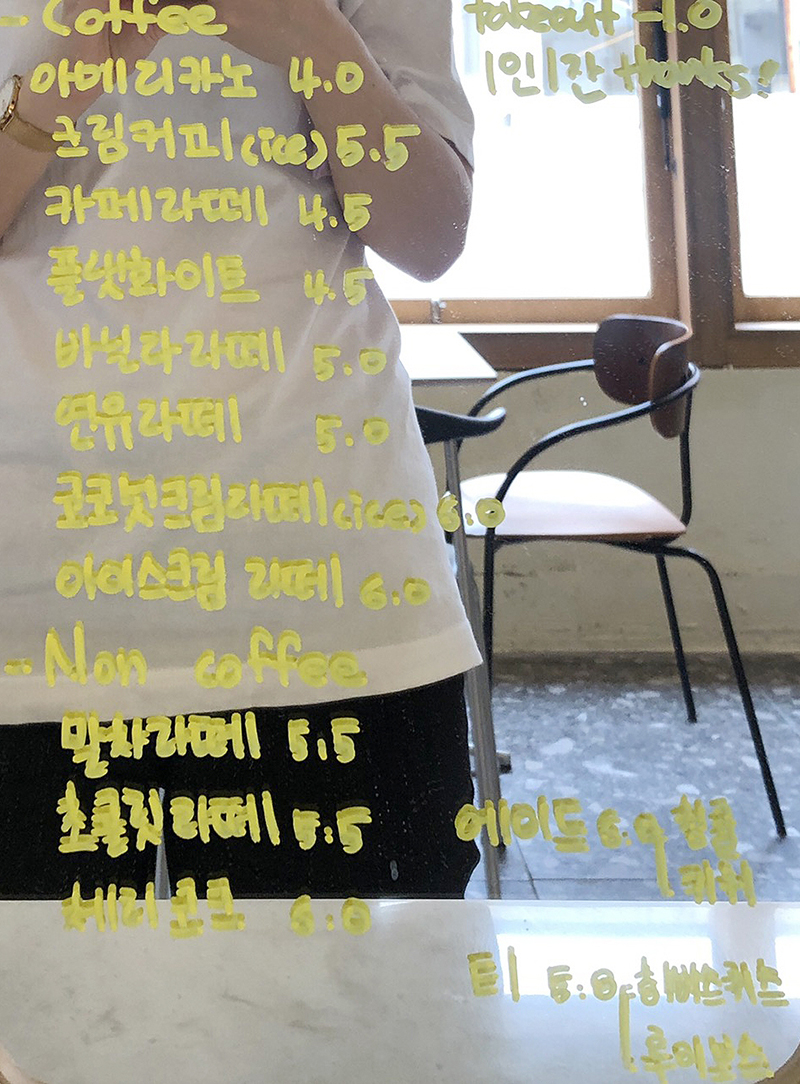 - Coffee
아메리카노 4.0
크림커피(ice) 5.5
카페라떼 4.5
플랫화이트 4.5
바닐라라떼 5.0
연유라떼 5.0
코코넛크림라떼(ice) 6.0
아이스크림 라떼 6.0
- Non coffee
말차라떼 5.5
초콜릿라떼 5.5
체리코코 6.0
takeout -1.0
1인1잔 thanks!
에이드 6.0 청귤
키위
티 5.0 히비스커스
루이보스